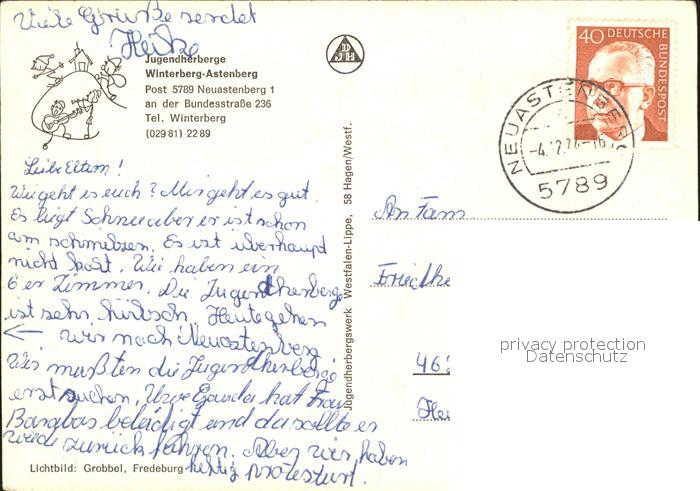 Viele Grüße sendet
Heike
Jugendherberge
Winterberg-Astenberg
Post 5789 Neuastenberg 1
an der Bundesstraße 236
Tel. Winterberg
(029 81) 22 89
Liebe Eltern!
Wie geht es euch? Mir geht es gut.
Es liegt Schnee aber er ist schon
am schmelzen. Es ist überhaupt
nicht kalt. Wir haben ein
6er Zimmer. Die Jugendherberge
ist sehr hübsch. Heute gehen
← wir nach Neuastenberg
Wir mußten die Jugendherberge
erst suchen. Uwe hat Frau
Barabas beleidigt und da sollte er
wieder zurück fahren. Aber wir haben
heftig protestiert.
Lichtbild: Grobbel, Fredeburg
Jugendherbergswerk Westfalen-Lippe, 58 Hagen/Westf.
DJH
40 DEUTSCHE
BUNDESPOST
NEUASTENBERG
-4.12.74-16
5789
An Fam
Friedhe
privacy protection
Datenschutz
46